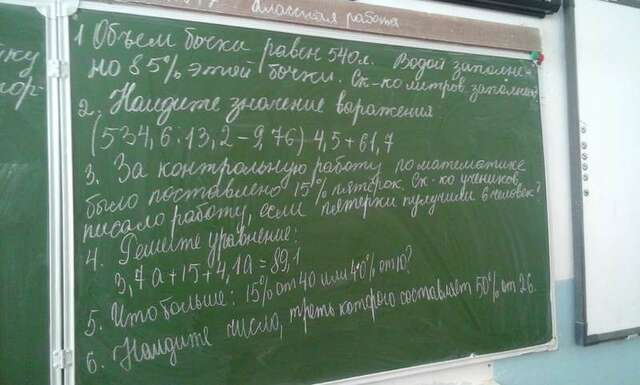 классная работа
1 Объем бочки равен 540л. Водой заполне-
но 85% этой бочки. Ск-ко литров заполнен?
2. Найдите значение выражения
(534,6:13,2-9,76) 4,5+61,7
3. За контрольную работу по математике
было поставлено 15% пятёрок. Ск-ко учеников
писало работу, если пятерки пулучили 6 человек?
4. Решите уравнение:
3,7а+15+4,1а=89,1
5. Что больше: 15% от 40 или 40% от 10?
6. Найдите число, треть которого составляет 50% от 26.